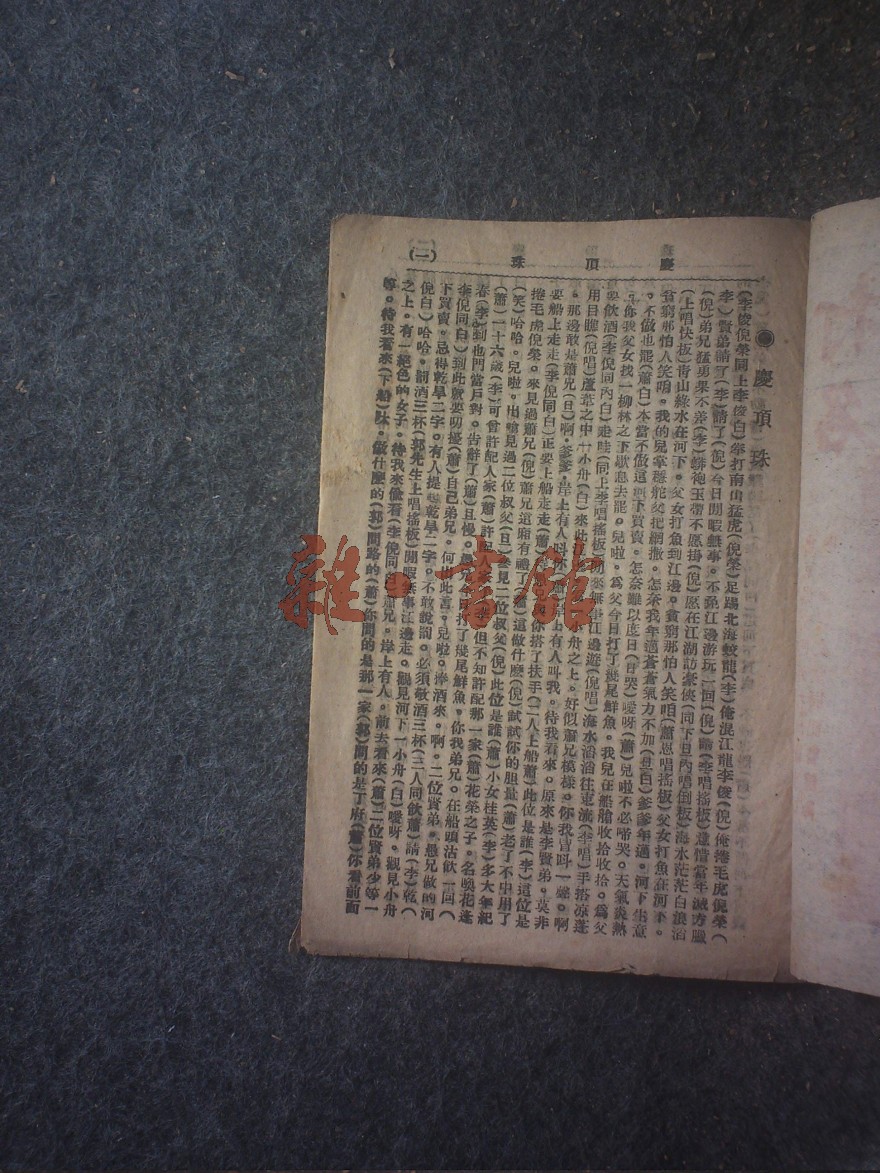 慶頂珠
(一)
●慶頂珠
(李俊倪榮同上李俊白)拳打南山猛虎(倪榮)足踢北海蛟龍(李)俺混江龍李俊(倪)俺捲毛虎倪榮(
李)賢弟請了(李)請了(倪)今日閒暇無事。不免江邊游玩一回(倪)請(李唱搖板)遙惜當年滅方臘
(倪)弟兄猛勇果不差(李)蟒袍玉帶不愿掛(倪)愿在江湖訪豪俠(同下旦內唱倒板)海水茫茫白浪滔
(上唱快板)青山綠水在河下。父女打魚到江邊。貧窮那怕人笑咱(蕭恩唱搖板)父女打魚在河下。
貧窮那怕人笑咱。我的兒掌穩舵父把網撒。怎奈我年邁蒼蒼氣力不加(旦白)爹爹年邁。河下生意
。不做也罷(蕭白)本當不做這河下買賣。怎奈難以度日(旦哭)噯呀(蕭)兒啦不必啼哭。天氣炎熱
。你我父女找一柳林之下歇息去罷。兒啦。為父今日打了幾尾鮮魚。我兒在船艙收拾收拾。為父
要飲酒(李倪同內白)走哇(同上李唱搖板)閒來無事江邊遊(倪唱)海水滔滔往東流(李唱)手搭凉蓬
用目瞧(倪唱)蘆葦之中一小舟(白)來此
小舟之上。好似蕭兄模樣。你我冒叫一聲。啊
。那邊敢是蕭兄(旦)啊。爹爹。岸上有人叫你(蕭)岸上有人叫我。待我看來。原來是李賢弟。莫非
要船上走走(李倪同白)正要上船走走(蕭)
與你搭了扶手(二人上船蕭)此位是誰(李)這位是
捲毛虎倪榮。來見過蕭兄(倪)蕭兄這廂有禮了(蕭)這做什麽(倪)試試你的胆量(蕭)老了不中用了
(笑)哈哈。兒啦。出艙見過二位叔父(旦)參見二位叔父(倪)此位是誰(蕭)小女桂英(李)多大年紀
(蕭)一十六歲(李)可曾許配人家(蕭)許配人家(李)但不知許配那一家(蕭)花榮之子。名喚花逢
春(李)到也門當戶對。告辭了(蕭)且慢。愚兄今日打了幾尾鮮魚。你我弟兄。在船頭沽飲一回(
李倪同白)到此就要叨擾(蕭)自己弟兄。何出此言。兒啦。捧酒來。啊。二位賢弟。愚兄做的河
下買賣。忌得乾旱二字。有人提起乾旱二字。不敢說罰。必須敬酒三杯(三人同飲蕭)請(李)乾(
倪白)哈哈。罰酒三杯(郭先生上唱搖板)閒暇無事江邊走。觀見河下一小舟(白)噯呀。觀見小舟
之上。有一絕色的女子。待我來偷看(李倪同白)蕭兄。岸上有人。前去看來(蕭)二位賢弟少等一
等。待我看來(下船)呔。做什麽的(郭)問路的(蕭)你問的是那一家(郭)問的是丁府(蕭)你看前面
雜·書館